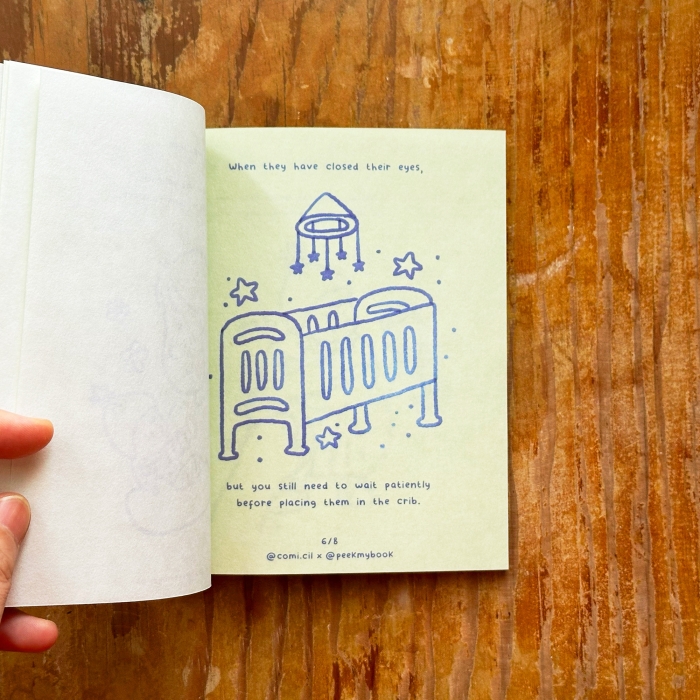 When they have closed their eyes,
but you still need to wait patiently
before placing them in the crib.
6/8
@comi.cil x @peekmybook